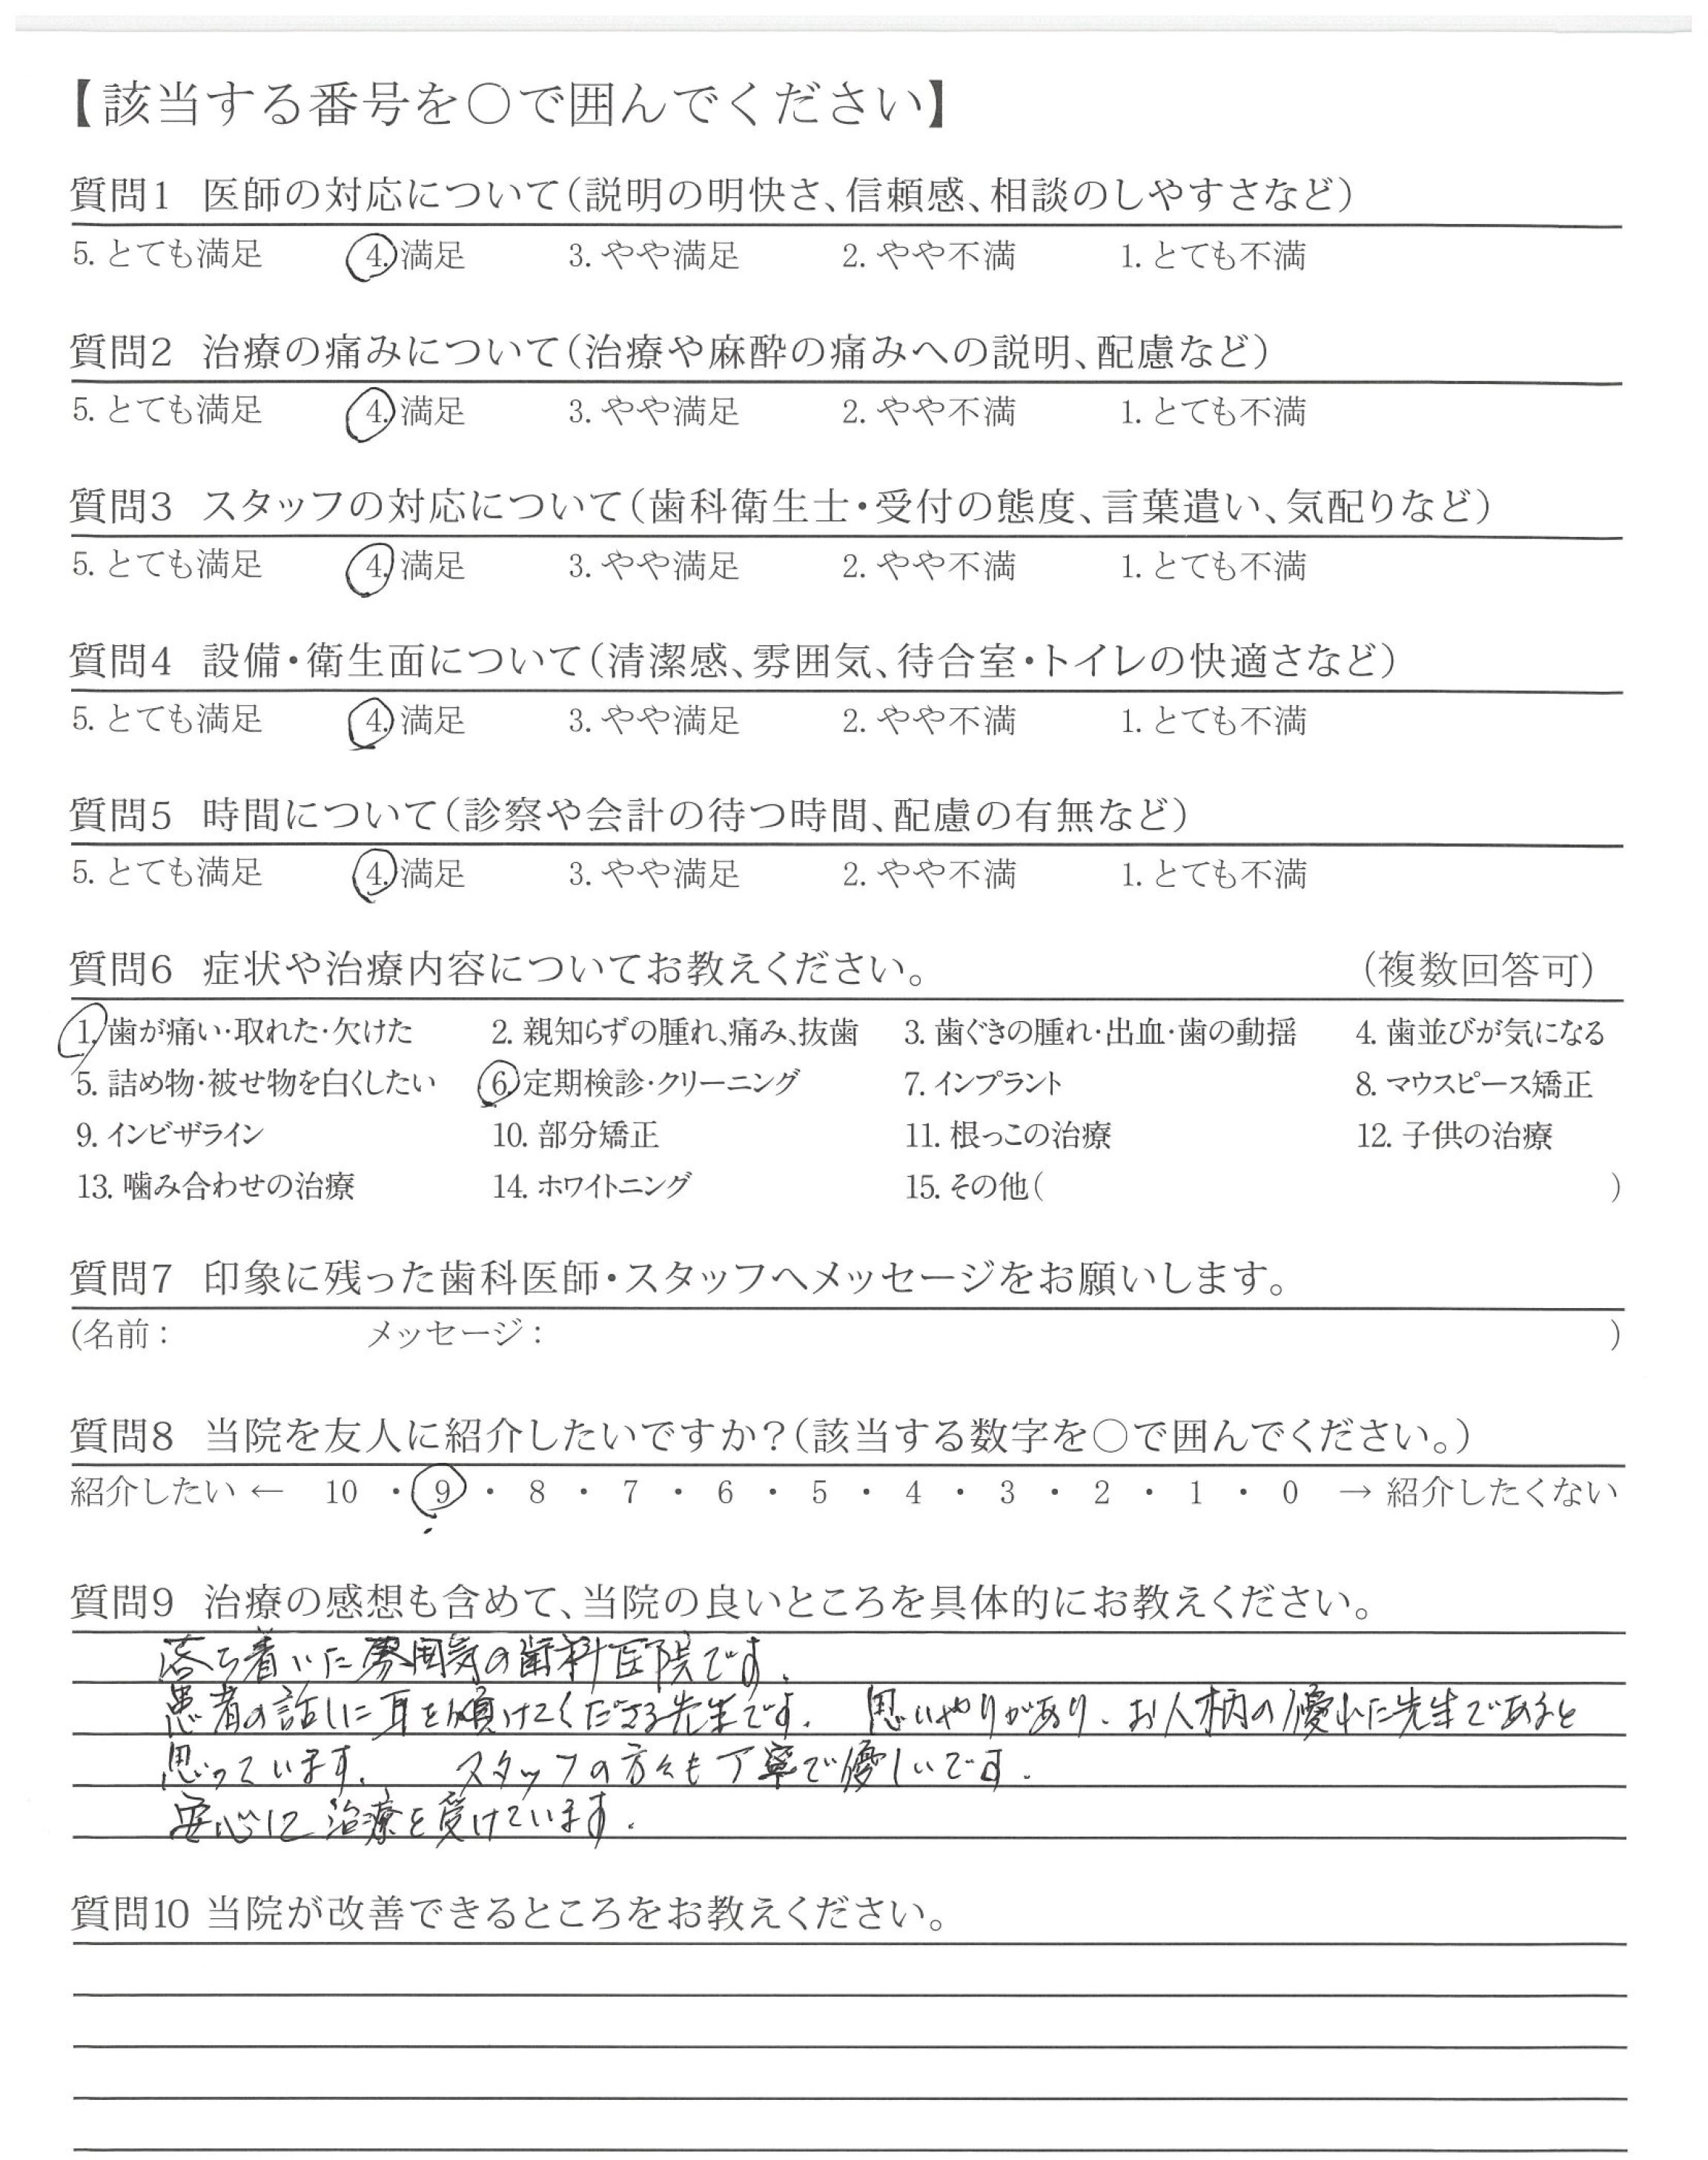 【該当する番号を○で囲んでください】
質問1 医師の対応について(説明の明快さ、信頼感、相談のしやすさなど)
5. とても満足 4. 満足 3. やや満足 2. やや不満 1. とても不満
質問2 治療の痛みについて(治療や麻酔の痛みへの説明、配慮など)
5. とても満足 4. 満足 3. やや満足 2. やや不満 1. とても不満
質問3 スタッフの対応について(歯科衛生士・受付の態度、言葉遣い、気配りなど)
5. とても満足 4. 満足 3. やや満足 2. やや不満 1. とても不満
質問4 設備・衛生面について(清潔感、雰囲気、待合室・トイレの快適さなど)
5. とても満足 4. 満足 3. やや満足 2. やや不満 1. とても不満
質問5 時間について(診察や会計の待つ時間、配慮の有無など)
5. とても満足 4. 満足 3. やや満足 2. やや不満 1. とても不満
質問6 症状や治療内容についてお教えください。 (複数回答可)
1. 歯が痛い・取れた・欠けた 2. 親知らずの腫れ、痛み、抜歯 3. 歯ぐきの腫れ・出血・歯の動揺 4. 歯並びが気になる
5. 詰め物・被せ物を白くしたい 6. 定期検診・クリーニング 7. インプラント 8. マウスピース矯正
9. インビザライン 10. 部分矯正 11. 根っこの治療 12. 子供の治療
13. 噛み合わせの治療 14. ホワイトニング 15. その他( )
質問7 印象に残った歯科医師・スタッフへメッセージをお願いします。
(名前: メッセージ: )
質問8 当院を友人に紹介したいですか?(該当する数字を○で囲んでください。)
紹介したい ← 10 ・ 9 ・ 8 ・ 7 ・ 6 ・ 5 ・ 4 ・ 3 ・ 2 ・ 1 ・ 0 → 紹介したくない
質問9 治療の感想も含めて、当院の良いところを具体的にお教えください。
落ち着いた雰囲気の歯科医院です。
患者の話しに耳を傾けてくださる先生です。 思いやりがあり、お人柄の優れた先生であると
思っています。 スタッフの方々も丁寧で優しいです。
安心して治療を受けています。
質問10 当院が改善できるところをお教えください。